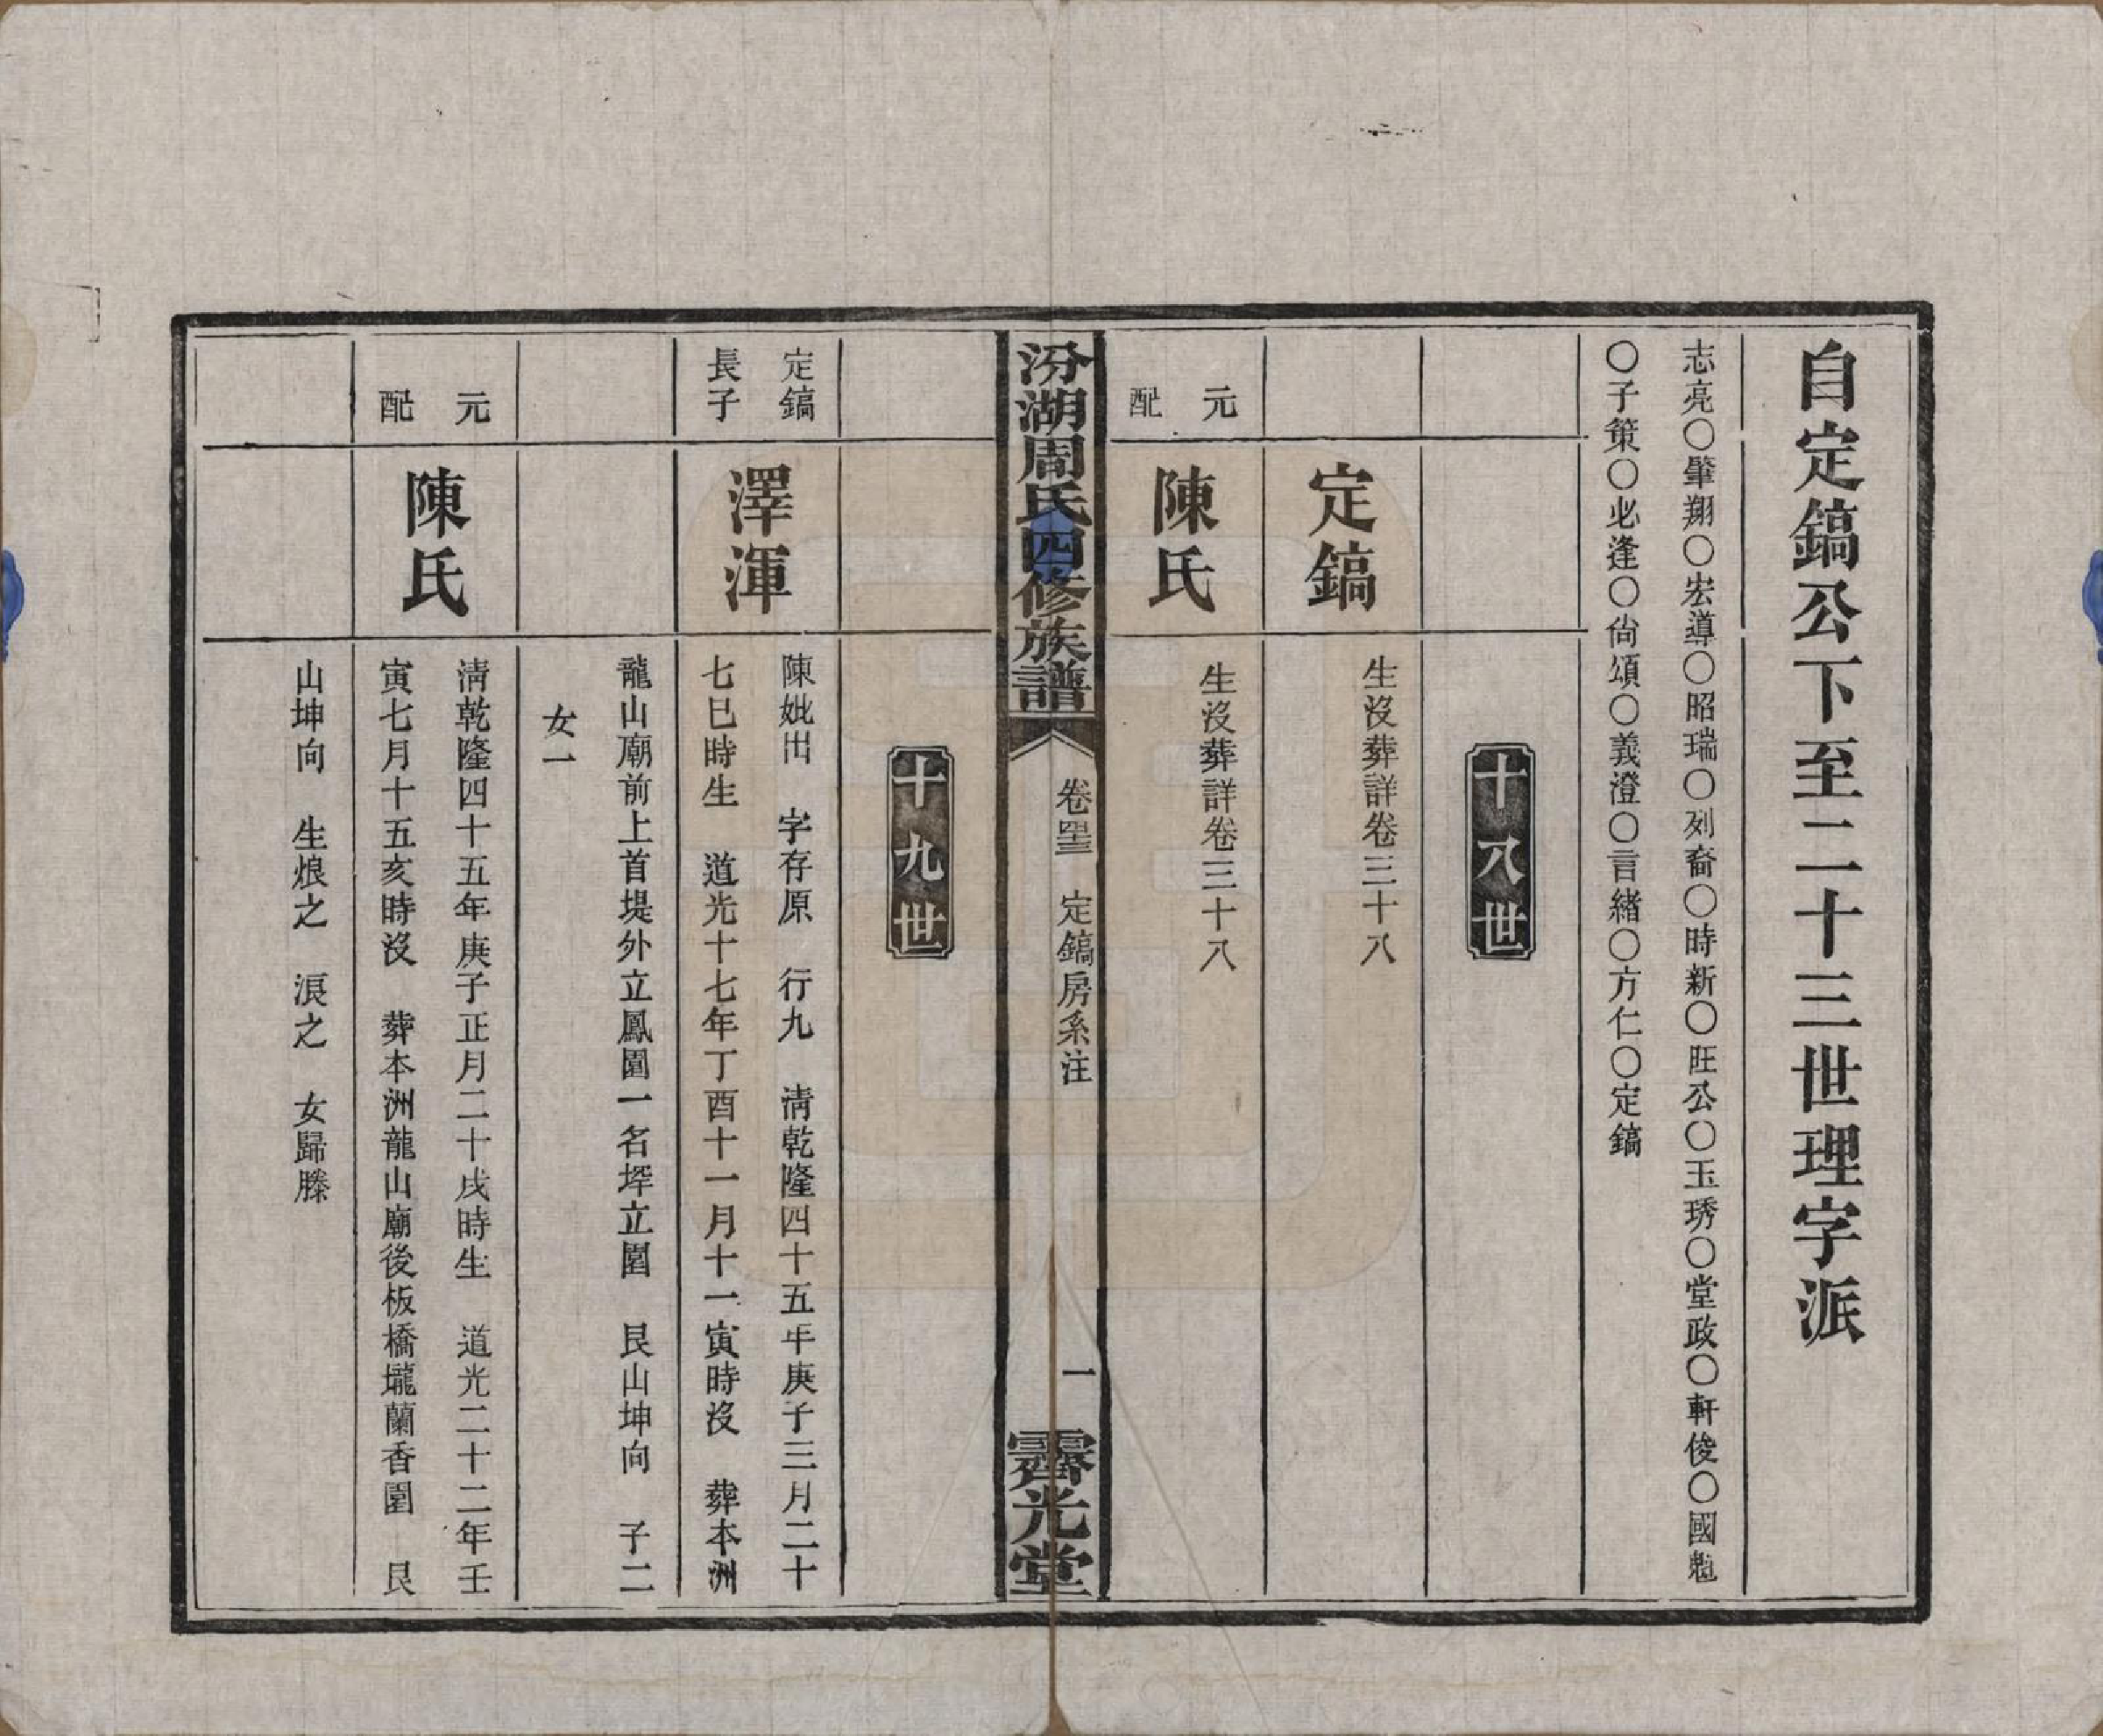 自定鎬公下至二十三世理字派
志亮〇肇翔〇宏導〇昭瑞〇列裔〇時新〇旺公〇玉琇〇堂政〇軒俊〇國魁
〇子策〇必逢〇尙頌〇義澄〇言緒〇方仁〇定鎬
十八世
定鎬
生沒葬詳卷三十八
元配
陳氏
生沒葬詳卷三十八
汾湖周氏四修族譜
卷四三
定鎬房系注
一
霽光堂
十九世
定鎬長子
澤渾
陳妣出 字存原 行九 淸乾隆四十五年庚子三月二十
七巳時生 道光十七年丁酉十一月十一寅時沒 葬本洲
龍山廟前上首堤外立鳳圍一名垾立圍 艮山坤向 子二
女一
元配
陳氏
淸乾隆四十五年庚子正月二十戌時生 道光二十二年壬
寅七月十五亥時沒 葬本洲龍山廟後板橋壠蘭香圍 艮
山坤向 生烺之 浪之 女歸滕